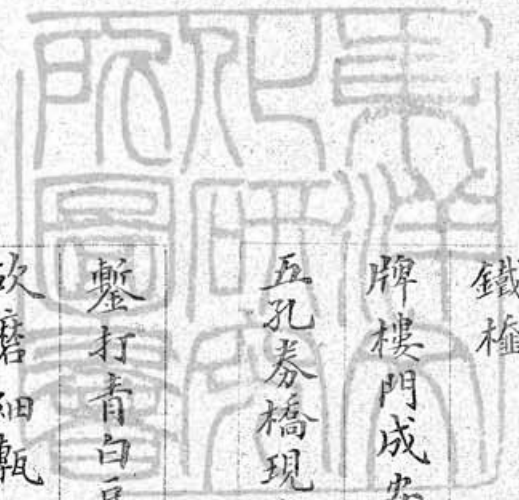 東洋文
化研究
所圖書
鐵
牌樓門成
五孔券橋現
鏨打青白豆
砍磨細甎